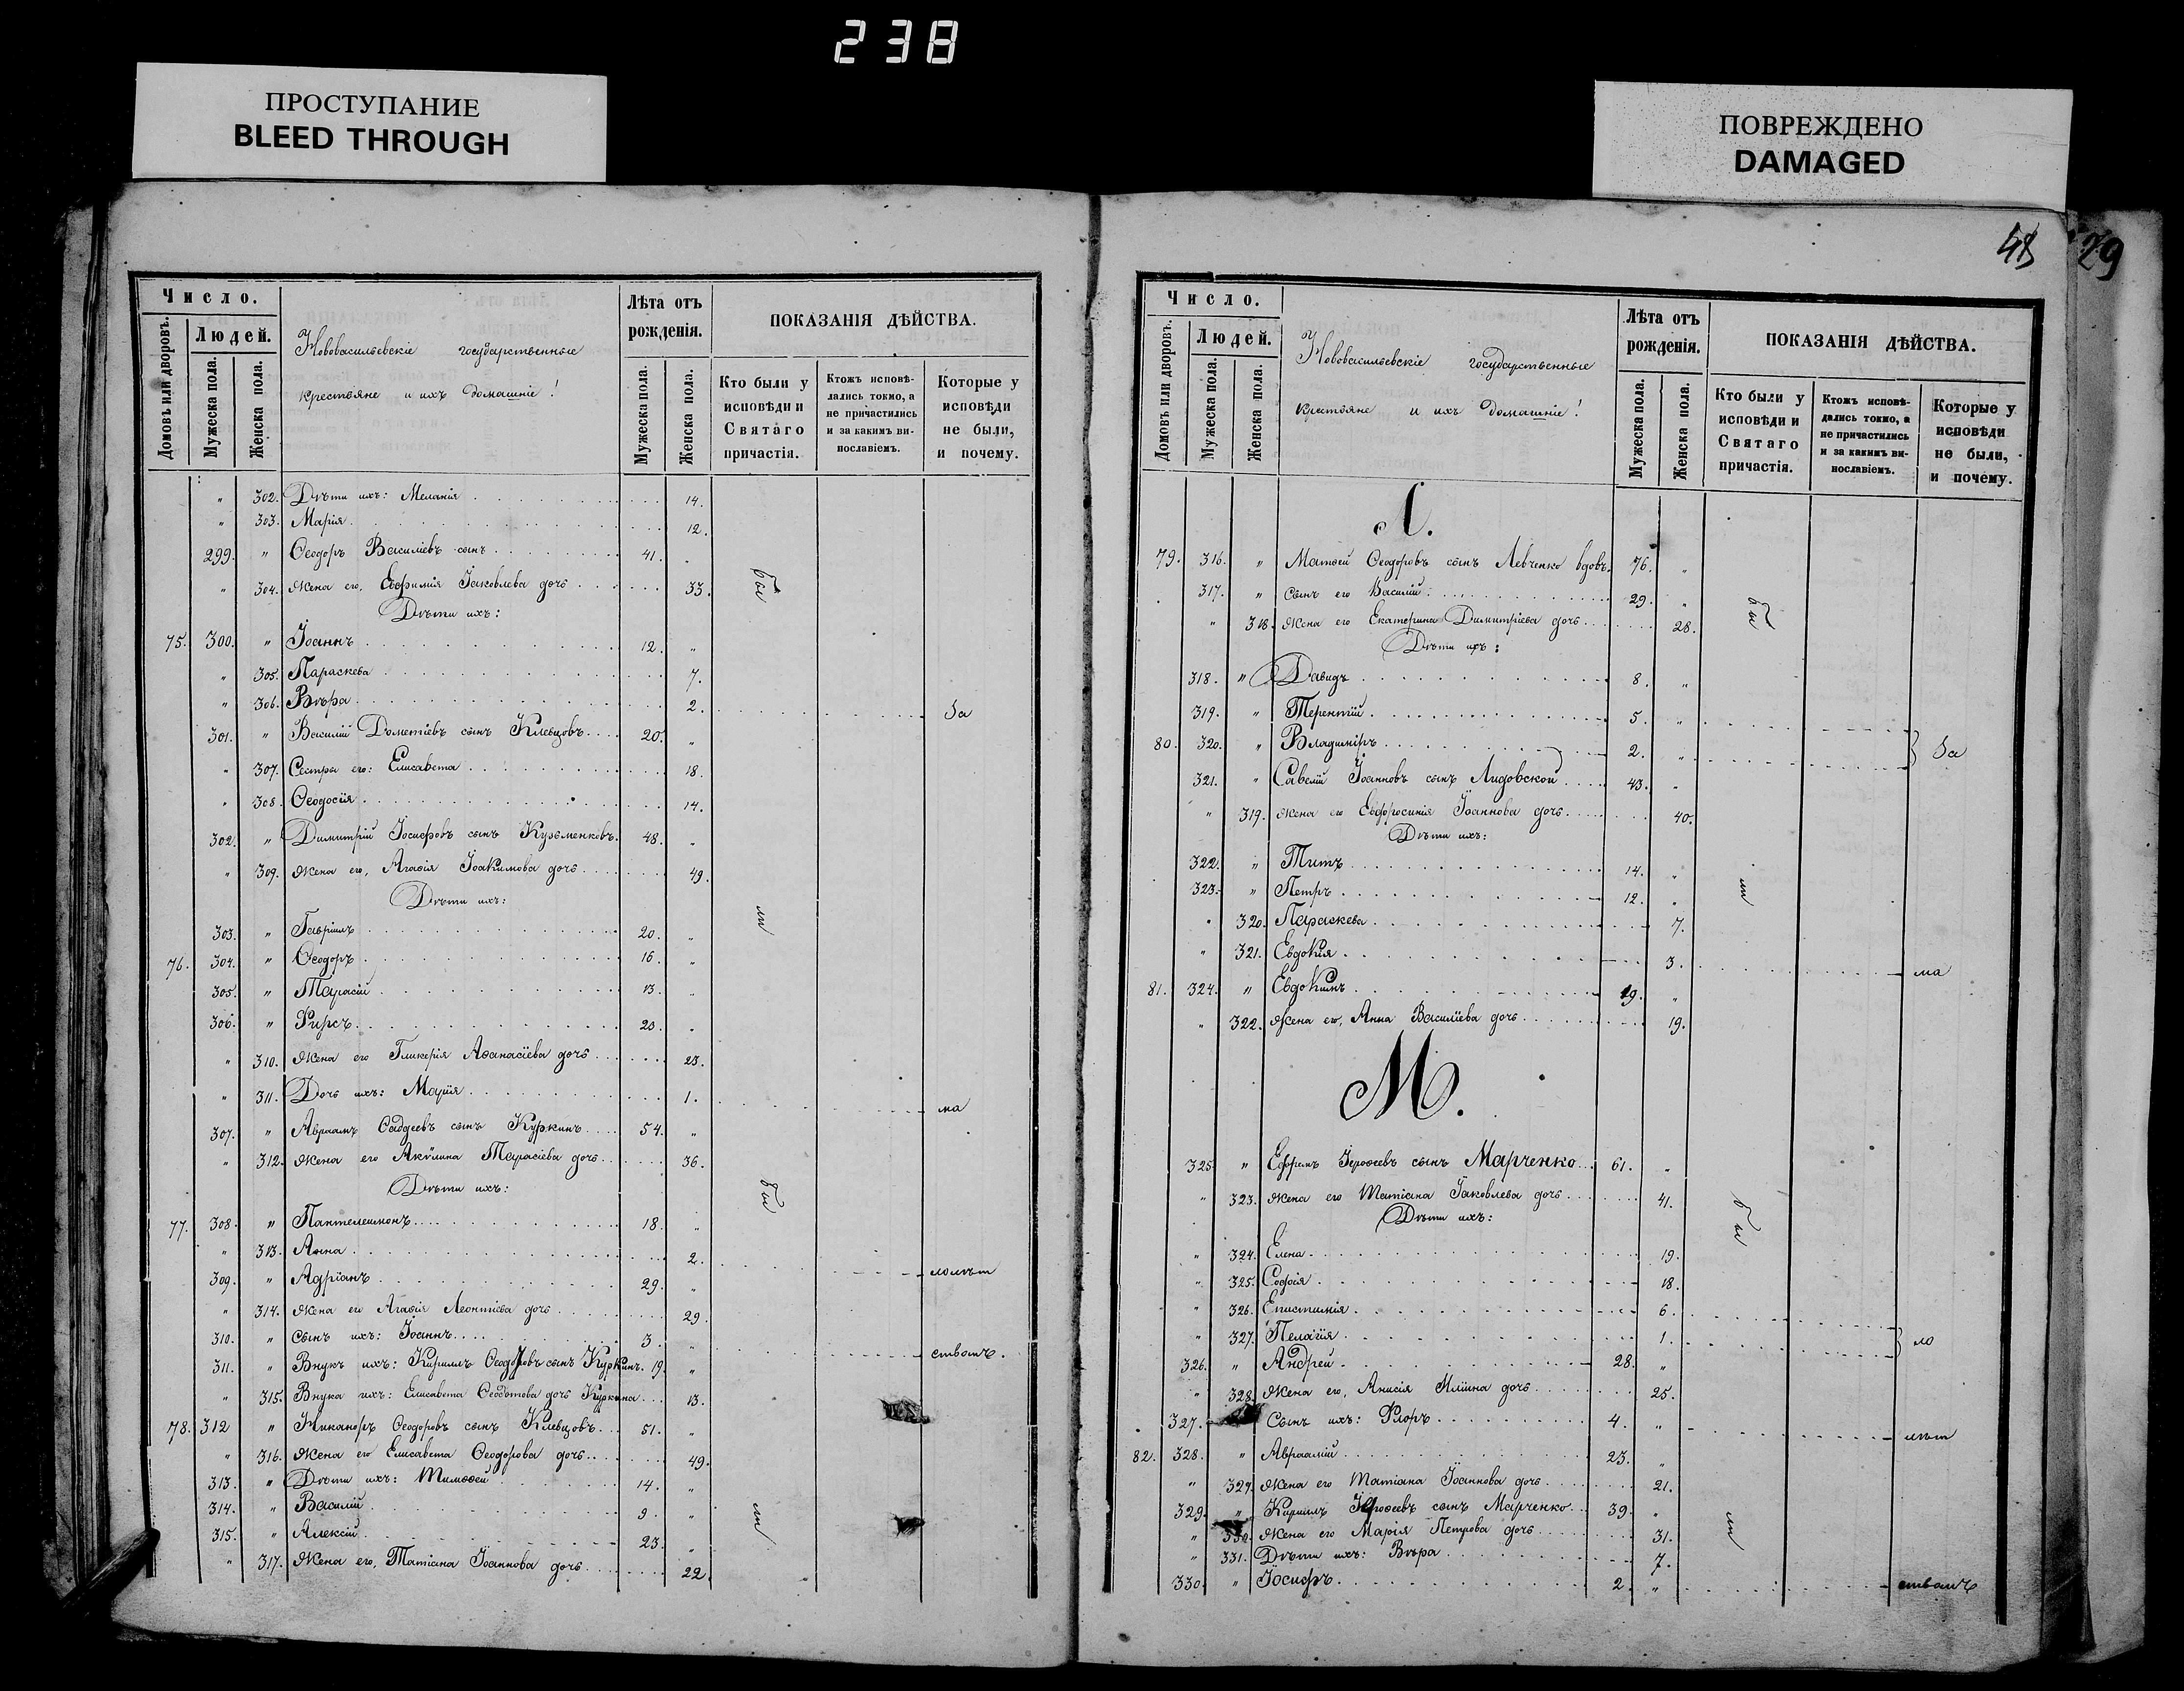 238
ПРОСТУПАНИЕ
BLEED THROUGH
ПОВРЕЖДЕНО
DAMAGED
Число.
Людей.
Домовъ или дворовъ.
Мужеска пола.
Женска пола.
Нововасильевскіе государственные
крестьяне и ихъ домашніе!
Лѣта отъ
рожденія.
Мужеска пола.
Женска пола.
ПОКАЗАНІЯ ДѢЙСТВА.
Кто были у
исповѣди и
Святаго
причастія.
Ктожъ исповѣ-
дались токмо, а
не причастились
и за какимъ ви-
нославіемъ.
Которые у
исповѣди
не были,
и почему.
" 302. Дѣти ихъ: Меланія 14.
" 303. Марія 12.
299. " Ѳеодоръ Василіевъ сынъ 41. "
" 304. Жена его, Евфимія Іаковлева дочь 33. бы
Дѣти ихъ:
75. 300. " Іоаннъ 12. "
" 305. Параскева 7.
" 306. Вѣра 2. За
301. " Василій Дометіевъ сынъ Клевцовъ 20. "
" 307. Сестры его: Елисавета 18.
" 308. Ѳеодосія 14.
302. " Димитрій Іосифовъ сынъ Кузьменковъ. 48. "
" 309. Жена его, Агаѳія Іоакимова дочь 49.
Дѣти ихъ:
ли
303. " Гавріилъ 20. "
76. 304. " Ѳеодоръ 16. "
305. " Тарасій 13. "
306. " Фирсъ 23. "
" 310. Жена его Гликерія Аѳанасіева дочь 23.
" 311. Дочь ихъ: Марія 1. ма
307. " Авраамъ Ѳаддеевъ сынъ Куркинъ 54. "
" 312. Жена его Акѵлина Тарасіева дочь 36.
Дѣти ихъ: бы
77. 308. " Пантелеимонъ 18. "
" 313. Анна 2. лолѣт
309. " Адріанъ 29. "
" 314. Жена его Агаѳія Леонтіева дочь 29.
310. " Сынъ ихъ: Іоаннъ 3. " ствомъ.
311. " Внукъ ихъ: Кириллъ Ѳеодоровъ сынъ Куркинъ. 19. "
" 315. Внука ихъ: Елисавета Ѳеодотова дочь Куркина 13.
78. 312 " Никаноръ Ѳеодоровъ сынъ Клевцовъ 51. "
" 316. Жена его Елисавета Ѳеодорова дочь 49.
313. " Дѣти ихъ: Тимоѳей 14. "
314. " Василій 9. " ли
315. " Алексій 23. "
" 317. Жена его, Татіана Іоаннова дочь 22.
48 29
Число.
Людей.
Домовъ или дворовъ.
Мужеска пола.
Женска пола.
Нововасильевскіе государственные
крестьяне и ихъ домашніе!
Лѣта отъ
рожденія.
Мужеска пола.
Женска пола.
ПОКАЗАНІЯ ДѢЙСТВА.
Кто были у
исповѣди и
Святаго
причастія.
Ктожъ исповѣ-
дались токмо, а
не причастились
и за какимъ ви-
нославіемъ.
Которые у
исповѣди
не были,
и почему.
Л.
79. 316. " Матѳей Ѳеодоровъ сынъ Левченко вдовъ. 76. "
317. " Сынъ его Василій 29. " бы
" 318. Жена его Екатерина Димитріева дочь 28.
Дѣти ихъ:
318. " Давидъ 8. "
319. " Терентій 5. "
80. 320. " Владиміръ 2. " За
321. " Савелій Іоанновъ сынъ Лидовской 43. "
" 319. Жена его Евфросинія Іоаннова дочь 40.
Дѣти ихъ:
322. " Титъ 14. "
323. " Петръ 12. " ли
" 320. Параскева 7.
" 321. Евдокія 3. ма
81. 324. " Евдокимъ 19. "
" 322. Жена его, Анна Василіева дочь 19.
М.
325. " Ефремъ Іероѳеевъ сынъ Марченко 61. "
" 323. Жена его Татіана Іаковлева дочь 41.
Дѣти ихъ: бы
" 324. Елена 19.
" 325. Софія 18.
" 326. Епистимія 6.
" 327. Пелагія 1. ло
326. " Андрей 28. "
" 328. Жена его, Анисія Иліина дочь 25.
327. Сынъ ихъ: Флоръ 4. " лѣт
82. 328. " Авраамій 23. "
" 329. Жена его Татіана Іоаннова дочь 21.
329. " Кириллъ Іероѳеевъ сынъ Марченко 39. "
" 330. Жена его Марія Петрова дочь 31. ли
" 331. Дѣти ихъ: Вѣра 7.
330. " Іосифъ 2. " ствомъ